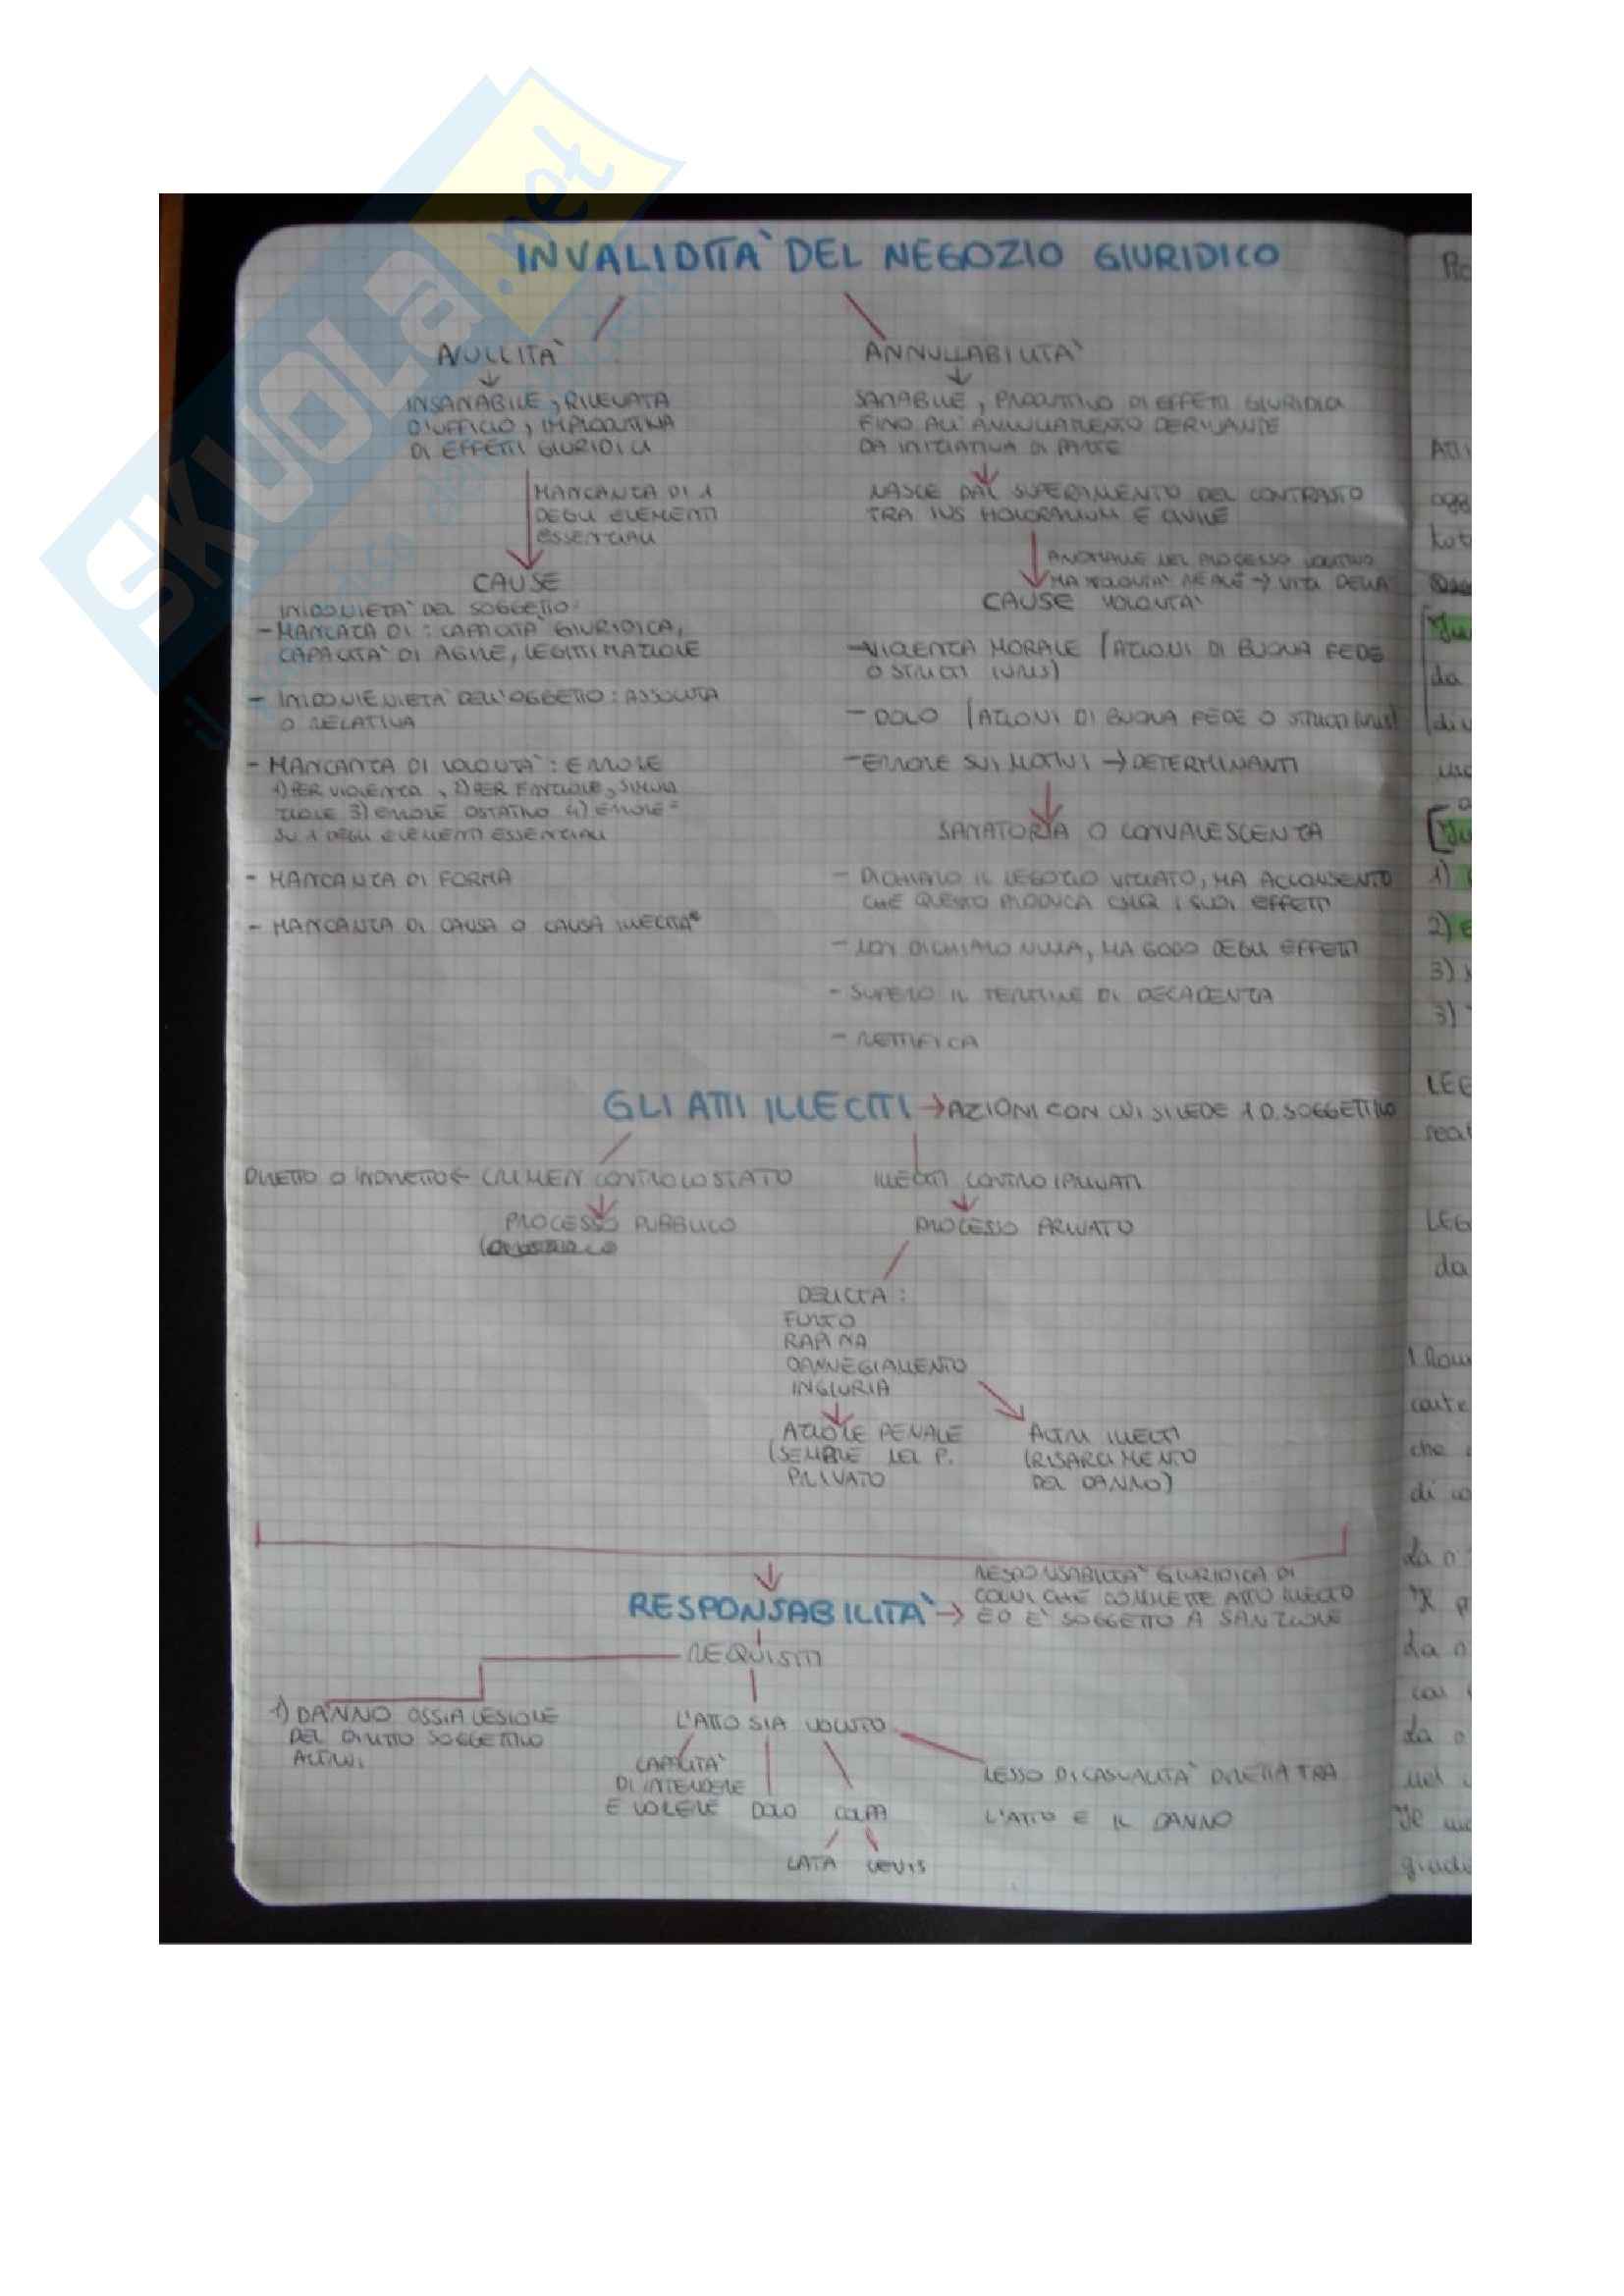 INVALIDITÀ DEL NEGOZIO GIURIDICO
NULLITÀ
INSANABILE, RILEVATA
D'UFFICIO, IMPRODUTTIVA
DI EFFETTI GIURIDICI
MANCANZA DI 1
DEGLI ELEMENTI
ESSENZIALI
CAUSE
INIDONIETÀ DEL SOGGETTO:
- MANCATA DI: CAPACITÀ GIURIDICA,
CAPACITÀ DI AGIRE, LEGITTIMAZIONE
- INIDONIENIETÀ DELL'OGGETTO: ASSOLUTA
O RELATIVA
- MANCANZA DI VOLONTÀ: ERRORE
1) PER VIOLENZA, 2) PER FINZIONE, SIMULA
ZIONE 3) ERRORE OSTATIVO 4) ERRORE
SU 1 DEGLI ELEMENTI ESSENZIALI
- MANCANZA DI FORMA
- MANCANZA DI CAUSA O CAUSA ILLECITA*
ANNULLABILITÀ
SANABILE, PRODUTTIVO DI EFFETTI GIURIDICI
FINO ALL'ANNULLAMENTO DERIVANTE
DA INIZIATIVA DI PARTE
NASCE DAL SUPERAMENTO DEL CONTRASTO
TRA IUS HONORARIUM E CIVILE
ANOMALIE NEL PROCESSO VOLITIVO
MA VOLONTÀ REALE → VIZI DELLA
CAUSE VOLONTÀ
- VIOLENZA MORALE (AZIONI DI BUONA FEDE
O STRICTI IURIS)
- DOLO (AZIONI DI BUONA FEDE O STRICTI IURIS)
- ERRORE SUI MOTIVI → DETERMINANTI
SANATORIA O CONVALESCENZA
- DICHIARO IL NEGOZIO VIZIATO, MA ACCONSENTO
CHE QUESTO PRODUCA CMQ I SUOI EFFETTI
- NON DICHIARO NULLA, MA GODO DEGLI EFFETTI
- SUPERO IL TERMINE DI DECADENZA
- RETTIFICA
GLI ATTI ILLECITI → AZIONI CON CUI SI LEDE 1 D. SOGGETTIVO
DIRETTO O INDIRETTO ← CRIMEN CONTRO LO STATO
PROCESSO PUBBLICO
ILLECITI CONTRO I PRIVATI
PROCESSO PRIVATO
DELICTA:
FURTO
RAPINA
DANNEGIAMENTO
INGIURIA
AZIONE PENALE
(SEMPRE NEL P.
PRIVATO
ALTRI ILLECITI
(RISARCIMENTO
DEL DANNO)
RESPONSABILITÀ → RESPONSABILITÀ GIURIDICA DI
COLUI CHE COMMETTE ATTO ILLECITO
ED È SOGGETTO A SANZIONE
REQUISITI
1) DANNO OSSIA LESIONE
DEL DIRITTO SOGGETTIVO
ALTRUI
L'ATTO SIA VOLUTO
CAPACITÀ
DI INTENDERE
E VOLERE
DOLO
COLPA
LATA LEVIS
NESSO DI CASUALITÀ DIRETTA TRA
L'ATTO E IL DANNO
SKUOLA.net